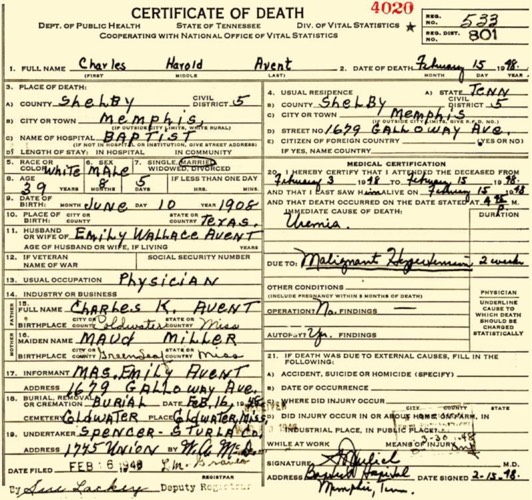 CERTIFICATE OF DEATH
4020
REG. NO. 533
DEPT. OF PUBLIC HEALTH STATE OF TENNESSEE DIV. OF VITAL STATISTICS
REG. DIST. 801
COOPERATING WITH NATIONAL OFFICE OF VITAL STATISTICS
1. FULL NAME Charles Harold Avent
(FIRST) MIDDLE LAST)
2. DATE OF DEATH February 15 1948.
MONTH DAY YEAR
3. PLACE OF DEATH:
A) COUNTY SHELBY CIVIL DISTRICT 5
B) CITY OR TOWN MEMPHIS,
(IF OUTSIDE CITY LIMITS, WRITE RURAL)
C) NAME OF HOSPITAL BAPTIST
(IF NOT IN HOSPITAL OR INSTITUTION, GIVE STREET ADDRESS)
D) LENGTH OF STAY: IN HOSPITAL IN COMMUNITY
4. USUAL RESIDENCE A) STATE TENN
B) COUNTY SHELBY CIVIL DISTRICT 5
C) CITY OR TOWN MEMPHIS
(IF OUTSIDE CITY LIMITS, GIVE R.F.D. NO.)
D) STREET NO 1679 GALLOWAY AVE.
E) CITIZEN OF FOREIGN COUNTRY (YES OR NO)
IF YES, NAME COUNTRY
5. RACE OR COLOR WHITE 6. SEX MALE 7. SINGLE, MARRIED WIDOWED, DIVORCED
8. AGE 39 YEARS 8 MONTHS 5 DAYS IF LESS THAN ONE DAY HRS. MIN.
9. DATE OF BIRTH: JUNE 10 1908
MONTH DAY YEAR
10. PLACE OF BIRTH: CITY OR COUNTY STATE OR COUNTRY TEXAS.
11. HUSBAND OR WIFE OF EMILY WALLACE AVENT
AGE OF HUSBAND OR WIFE, IF LIVING YEARS
12. IF VETERAN NAME OF WAR SOCIAL SECURITY NUMBER
13. USUAL OCCUPATION PHYSICIAN
14. INDUSTRY OR BUSINESS
FATHER
15. FULL NAME CHARLES K. AVENT
BIRTHPLACE CITY OR COUNTY Coldwater STATE OR COUNTRY Miss
MOTHER
16. MAIDEN NAME MAUD MILLER
BIRTHPLACE CITY OR COUNTY Greenleaf STATE OR COUNTRY Miss
17. INFORMANT MRS. EMILY AVENT
ADDRESS 1679 GALLOWAY AVE.
18. BURIAL, REMOVAL OR CREMATION BURIAL DATE FEB. 16, 1948
CEMETERY COLDWATER PLACE COLDWATER, MISS
19. UNDERTAKER SPENCER-STURLA CO.
ADDRESS 1745 UNION BY
DATE FILED FEB 16 1948
REGISTRAR
By Lackey Deputy Registrar
MEDICAL CERTIFICATION
20. I HEREBY CERTIFY THAT I ATTENDED THE DECEASED FROM
February 3 1948 TO February 15 1948.
AND THAT I LAST SAW HIM ALIVE ON February 15 1948
AND THAT DEATH OCCURRED ON THE DATE STATED AT P M.
IMMEDIATE CAUSE OF DEATH: DURATION
Uremia.
DUE TO: Malignant Hypertension 2 weeks
OTHER CONDITIONS
(INCLUDE PREGNANCY WITHIN 3 MONTHS OF DEATH)
OPERATION? No. FINDINGS
AUTOPSY? FINDINGS
PHYSICIAN
UNDERLINE CAUSE TO WHICH DEATH SHOULD BE CHARGED STATISTICALLY
21. IF DEATH WAS DUE TO EXTERNAL CAUSES, FILL IN THE FOLLOWING:
A) ACCIDENT, SUICIDE OR HOMICIDE (SPECIFY)
B) DATE OF OCCURRENCE
WHERE DID INJURY OCCUR CITY OR COUNTY STATE
D) DID INJURY OCCUR IN OR ABOUT HOME, ON FARM, IN
INDUSTRIAL PLACE, IN PUBLIC PLACE?
WHILE AT WORK MEANS OF INJURY
3-30-48
SIGNATURE M.D.
ADDRESS Baptist Hospital DATE 2-15-48.
Memphis, Tenn.